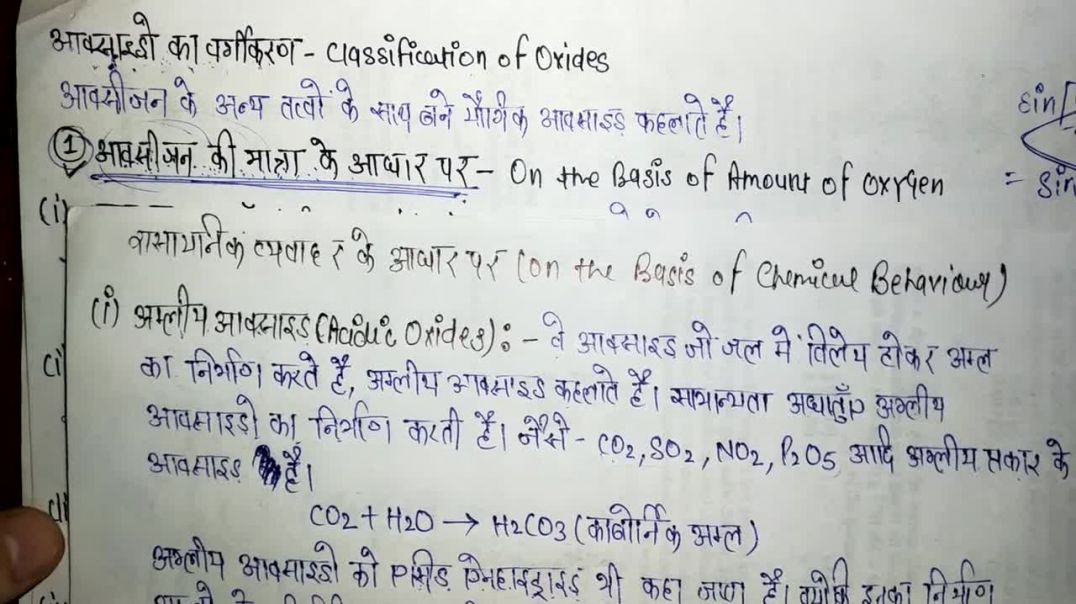 आक्साइडो का वर्गीकरण - Classification of Oxides
आक्सीजन के अन्य तत्वों के साथ बने यौगिक आक्साइड कहलाते है।
① आक्सीजन की मात्रा के आधार पर - On the Basis of Amount of Oxygen
(i)
रासायनिक व्यवाहर के आधार पर (On the Basis of Chemical Behaviour)
(i) अम्लीय आक्साइड (Acidic Oxides) : - वे आक्साइड जो जल में विलेय होकर अम्ल
का निर्माण करते है, अम्लीय आक्साइड कहलाते है। सामान्यता अधातुएँ अम्लीय
आक्साइडो का निर्माण करती है। जैसे - CO2, SO2, NO2, P2O5 आदि अम्लीय प्रकार के
आक्साइड है।
CO2 + H2O → H2CO3 (कार्बोनिक अम्ल)
अम्लीय आक्साइडो को एसीड ऐनहाइड्राइड भी कहा जाता है। क्योंकि इनका निर्माण
sin
= sin